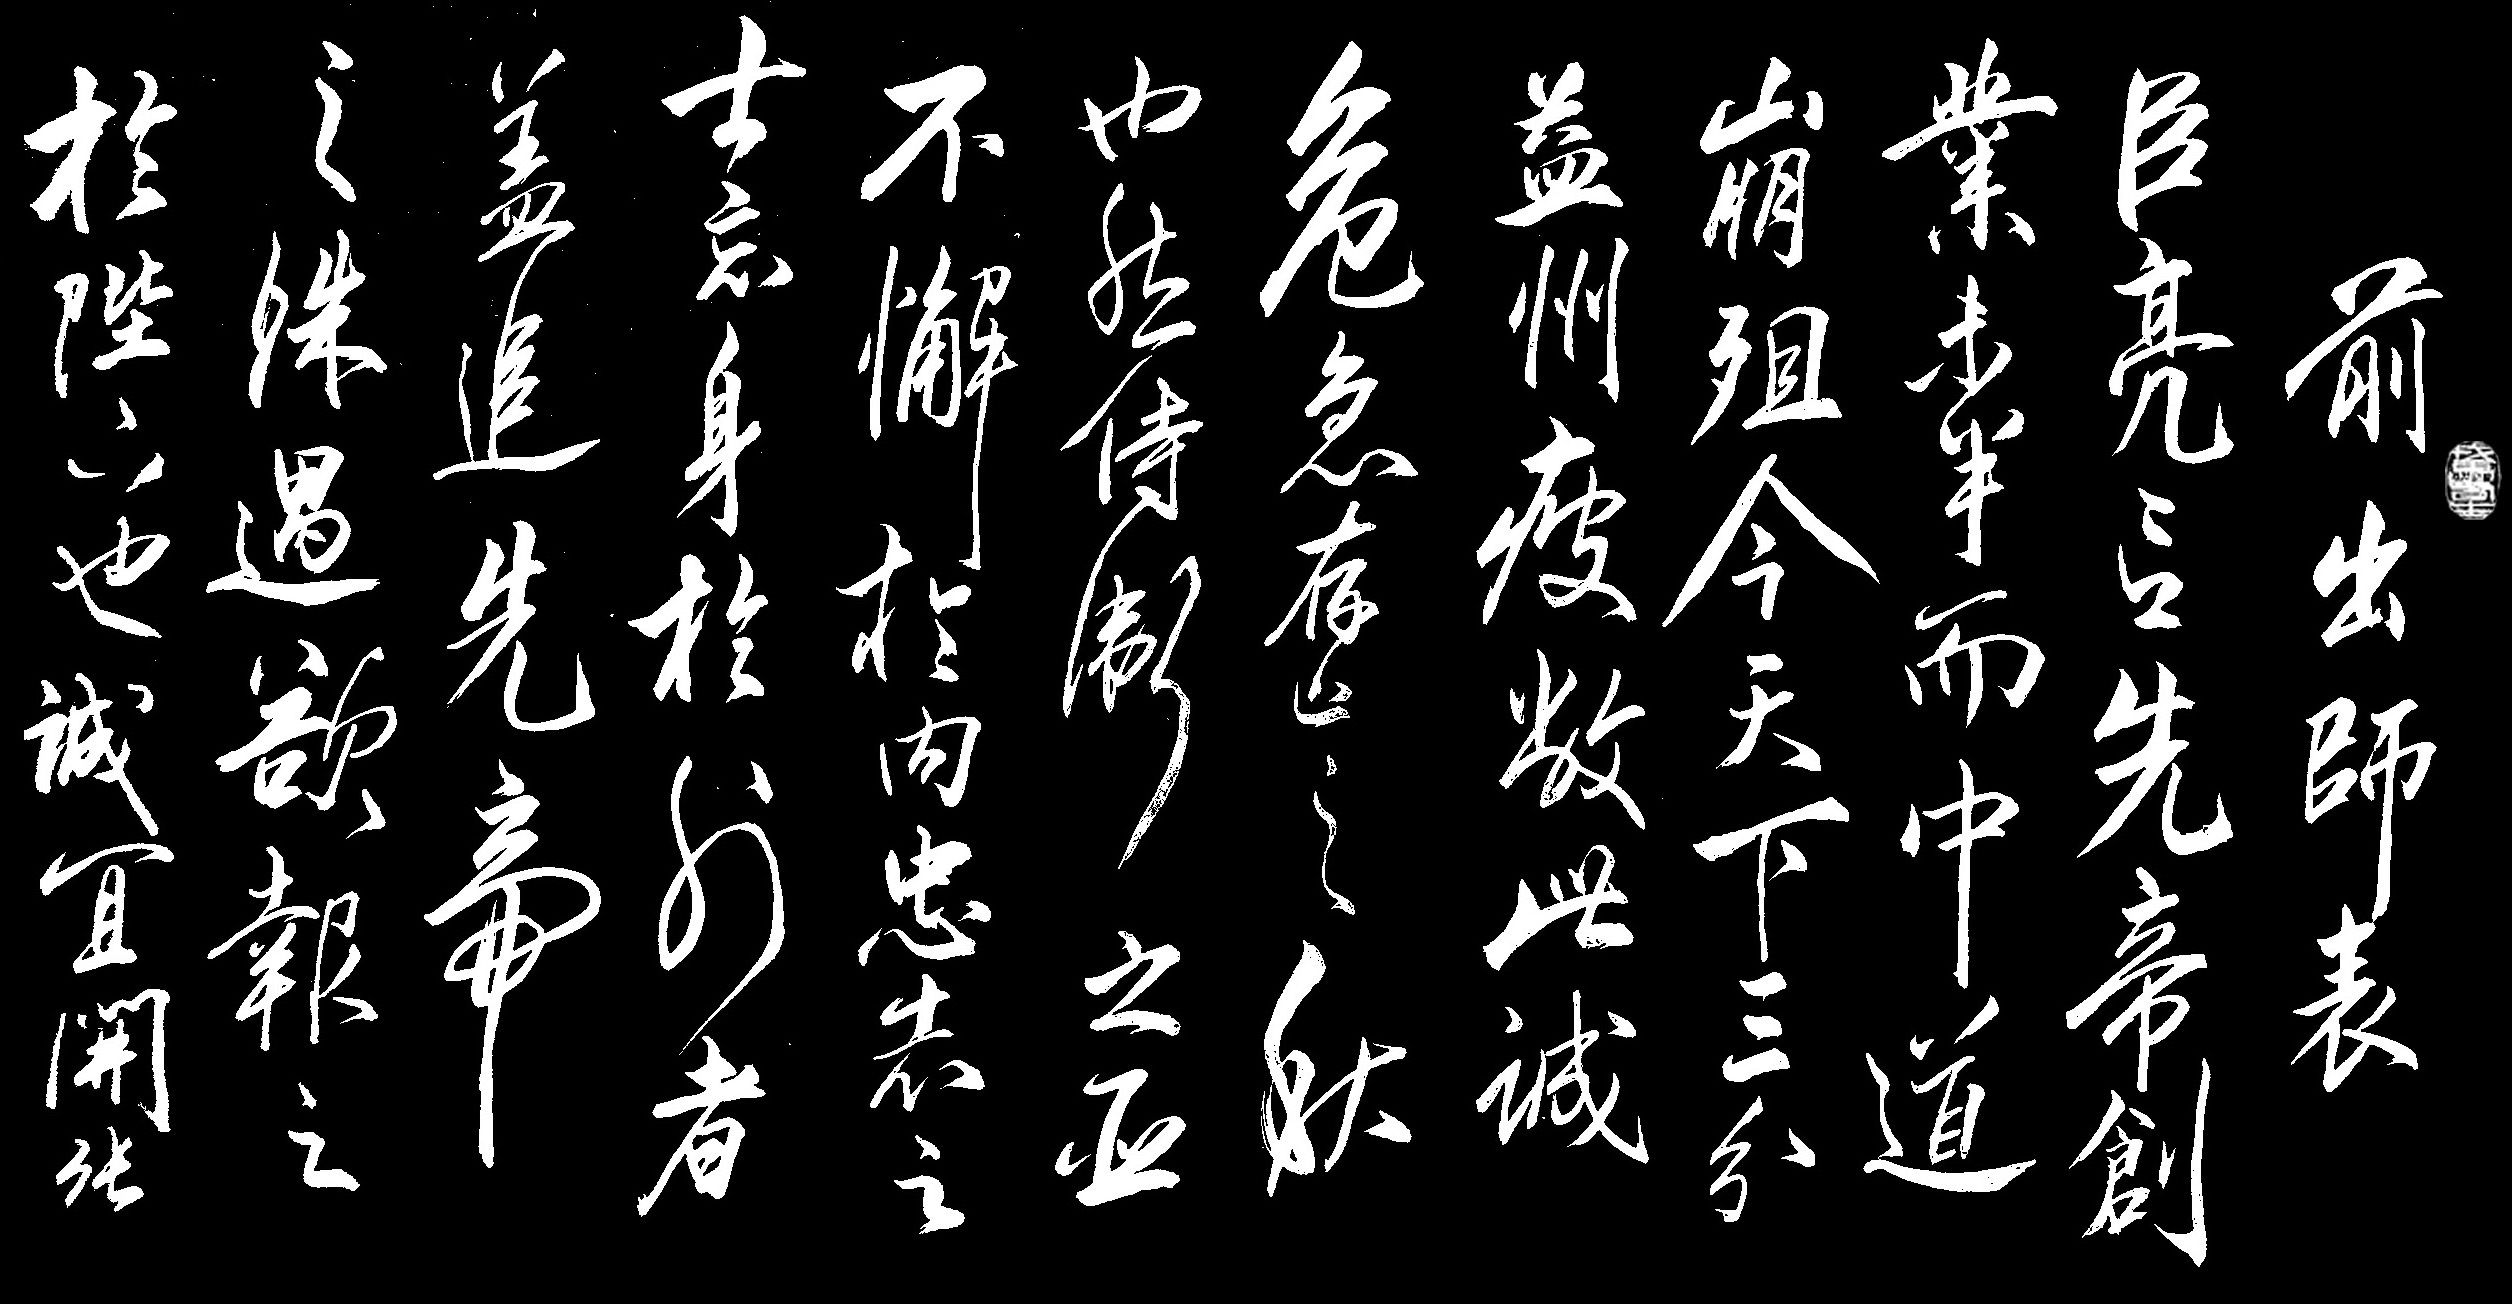 前出師表
臣亮言先帝創
業未半而中道
崩殂今天下三分
益州疲敝此誠
危急存亡之秋
也然侍衛之臣
不懈於内忠志之
士忘身於外者
蓋追先帝
之殊遇欲報之
於陛下也誠宜開張